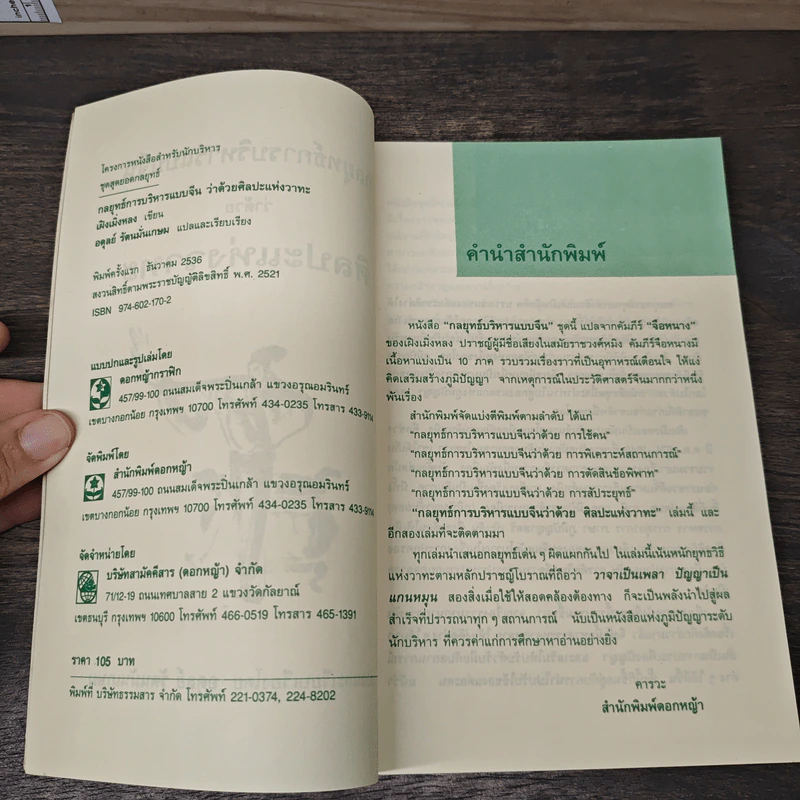 โครงการหนังสือสำหรับนักบริหาร
ชุดสุดยอดกลยุทธ์
กลยุทธ์การบริหารแบบจีน ว่าด้วยศิลปะแห่งวาทะ
เฝิงเมิ่งหลง เขียน
อดุลย์ รัตนมั่นเกษม แปลและเรียบเรียง
พิมพ์ครั้งแรก ธันวาคม 2536
สงวนสิทธิ์ตามพระราชบัญญัติลิขสิทธิ์ พ.ศ. 2521
ISBN 974-602-170-2
แบบปกและรูปเล่มโดย
ดอกหญ้ากราฟิก
457/99-100 ถนนสมเด็จพระปิ่นเกล้า แขวงอรุณอมรินทร์
เขตบางกอกน้อย กรุงเทพฯ 10700 โทรศัพท์ 434-0235 โทรสาร 433-9114
จัดพิมพ์โดย
สำนักพิมพ์ดอกหญ้า
457/99-100 ถนนสมเด็จพระปิ่นเกล้า แขวงอรุณอมรินทร์
เขตบางกอกน้อย กรุงเทพฯ 10700 โทรศัพท์ 434-0235 โทรสาร 433-9114
จัดจำหน่ายโดย
บริษัทสามัคคีสาร (ดอกหญ้า) จำกัด
71/12-19 ถนนเทศบาลสาย 2 แขวงวัดกัลยาณ์
เขตธนบุรี กรุงเทพฯ 10600 โทรศัพท์ 466-0519 โทรสาร 465-1391
ราคา 105 บาท
พิมพ์ที่ บริษัทธรรมสาร จำกัด โทรศัพท์ 221-0374, 224-8202
คำนำสำนักพิมพ์
หนังสือ "กลยุทธ์บริหารแบบจีน" ชุดนี้ แปลจากคัมภีร์ "จือหนาง"
ของเฝิงเมิ่งหลง ปราชญ์ผู้มีชื่อเสียงในสมัยราชวงศ์หมิง คัมภีร์จือหนางมี
เนื้อหาแบ่งเป็น 10 ภาค รวบรวมเรื่องราวที่เป็นอุทาหรณ์เตือนใจ ให้แง่
คิดเสริมสร้างภูมิปัญญา จากเหตุการณ์ในประวัติศาสตร์จีนมากกว่าหนึ่ง
พันเรื่อง
สำนักพิมพ์จัดแบ่งตีพิมพ์ตามลำดับ ได้แก่
"กลยุทธ์การบริหารแบบจีนว่าด้วย การใช้คน"
"กลยุทธ์การบริหารแบบจีนว่าด้วย การพิเคราะห์สถานการณ์"
"กลยุทธ์การบริหารแบบจีนว่าด้วย การตัดสินข้อพิพาท"
"กลยุทธ์การบริหารแบบจีนว่าด้วย การสัประยุทธ์"
"กลยุทธ์การบริหารแบบจีนว่าด้วย ศิลปะแห่งวาทะ" เล่มนี้ และ
อีกสองเล่มที่จะติดตามมา
ทุกเล่มนำเสนอกลยุทธ์เด่นๆ ผิดแผกกันไป ในเล่มนี้เน้นหนักยุทธวิธี
แห่งวาทะตามหลักปราชญ์โบราณที่ถือว่า วาจาเป็นเพลา ปัญญาเป็น
แกนหมุน สองสิ่งเมื่อใช้ให้สอดคล้องต้องทาง ก็จะเป็นพลังนำไปสู่ผล
สำเร็จที่ปรารถนาทุกๆ สถานการณ์ นับเป็นหนังสือแห่งภูมิปัญญาระดับ
นักบริหาร ที่ควรค่าแก่การศึกษาหาอ่านอย่างยิ่ง
คารวะ
สำนักพิมพ์ดอกหญ้า